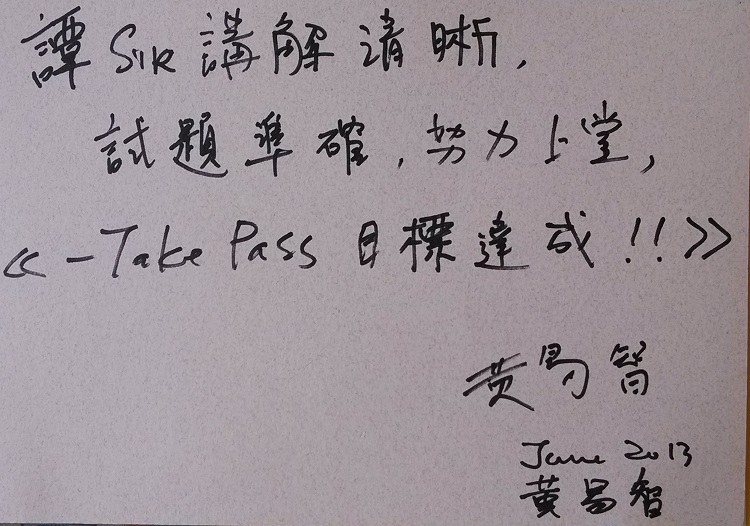 譚 Sir 講解清晰,
試題準確,努力上堂,
《一Take Pass 目標達成!!》
黃易智
June 2013
黃易智